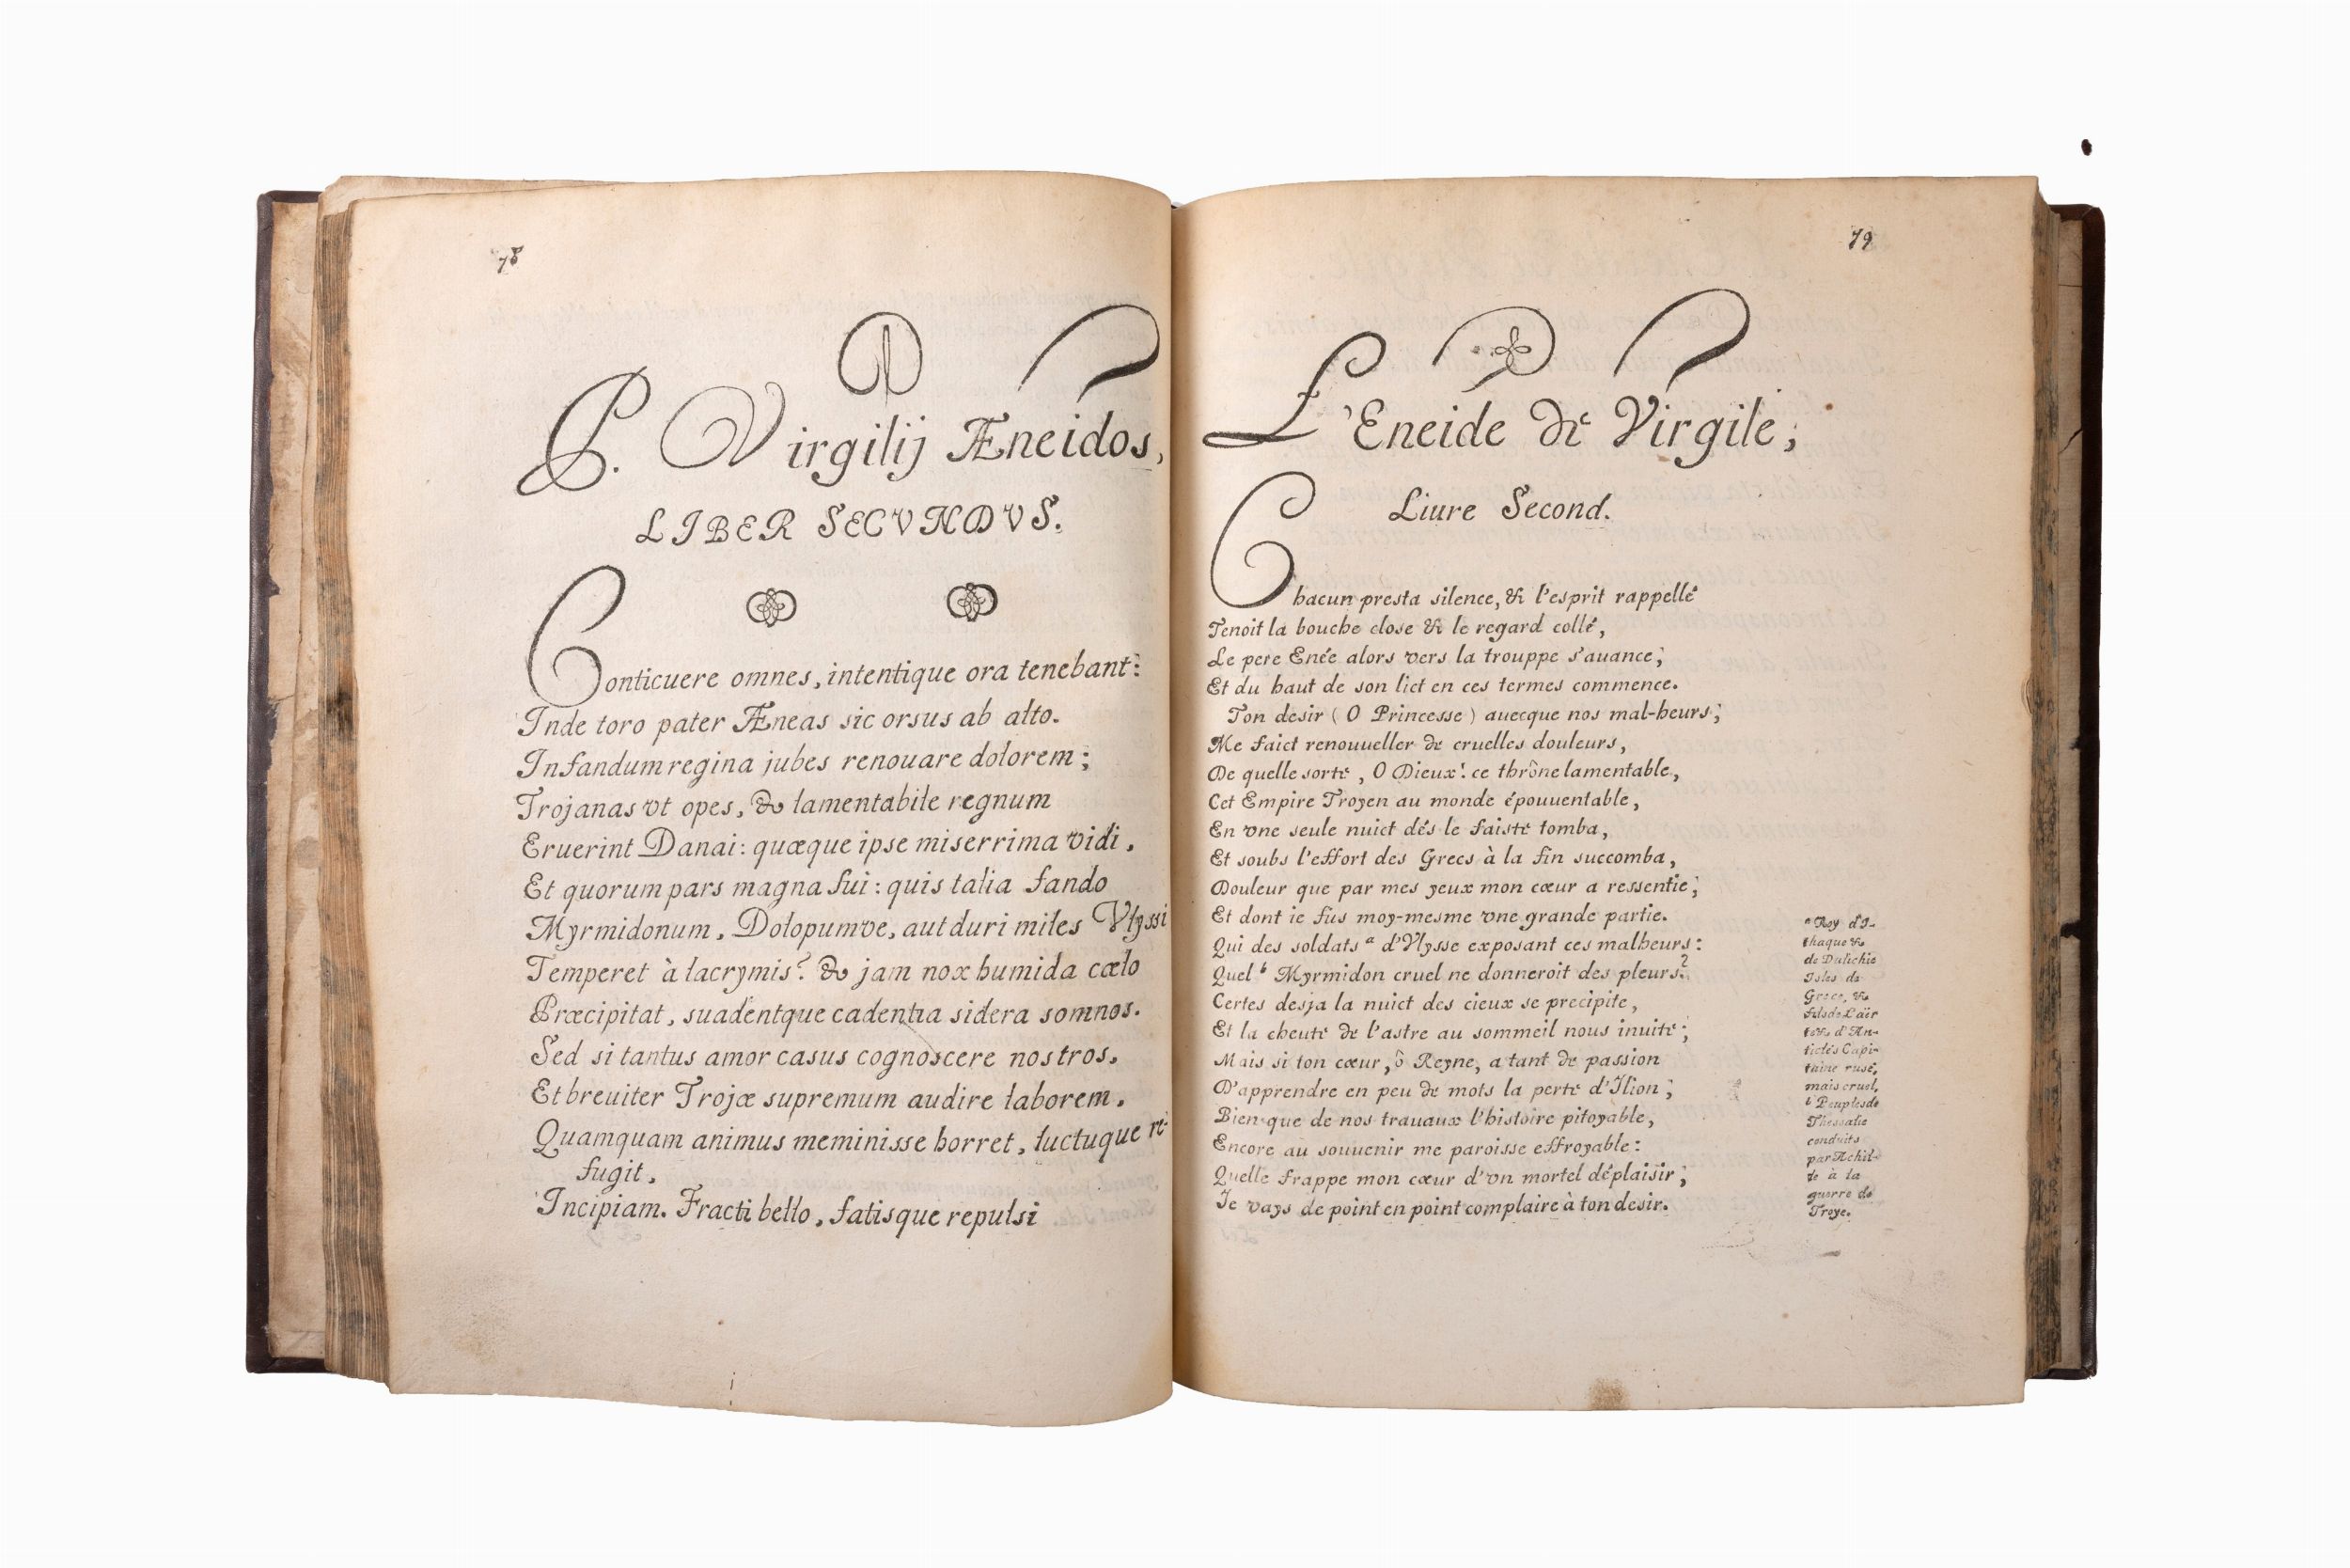 78
P. Virgilij Æneidos,
LIBER SECVNDVS.
Conticuere omnes, intentique ora tenebant:
Inde toro pater Æneas sic orsus ab alto.
Infandum regina jubes renouare dolorem;
Trojanas vt opes, & lamentabile regnum
Eruerint Danai: quæque ipse miserrima vidi,
Et quorum pars magna fui: quis talia fando
Myrmidonum, Dolopumve, aut duri miles Vlyssi
Temperet à lacrymis? & jam nox humida cœlo
Præcipitat, suadentque cadentia sidera somnos.
Sed si tantus amor casus cognoscere nostros,
Et breuiter Trojæ supremum audire laborem,
Quamquam animus meminisse horret, luctuque re-
fugit,
Incipiam. Fracti bello, fatisque repulsi
79
L'Eneide de Virgile;
Liure Second.
Chacun presta silence, & l'esprit rappellé
Tenoit la bouche close & le regard collé,
Le pere Enée alors vers la trouppe s'auance;
Et du haut de son lict en ces termes commence.
Ton desir (O Princesse) auecque nos mal-heurs;
Me faict renouueller de cruelles douleurs,
De quelle sorte, O Dieux! ce thrône lamentable,
Cet Empire Troyen au monde épouuentable,
En vne seule nuict dés le faiste tomba,
Et soubs l'effort des Grecs à la fin succomba,
Douleur que par mes yeux mon cœur a ressentie;
Et dont ie fus moy-mesme vne grande partie.
Qui des soldats a d'Vlysse exposant ces malheurs:
Quel b Myrmidon cruel ne donneroit des pleurs?
Certes desja la nuict des cieux se precipite,
Et la cheute de l'astre au sommeil nous inuite;
Mais si ton cœur, ô Reyne, a tant de passion
D'apprendre en peu de mots la perte d'Ilion;
Bien que de nos trauaux l'histoire pitoyable,
Encore au souuenir me paroisse effroyable:
Quelle frappe mon cœur d'vn mortel déplaisir;
Je vays de point en point complaire à ton desir.
a Roy d'I-
thaque &
de Dulichie
Isles de
Grece, &
fils de Laër
te & d'An-
ticlés Capi-
taine rusé,
mais cruel,
b Peuples de
Thessalie
conduits
par Achil-
le à la
guerre de
Troye.